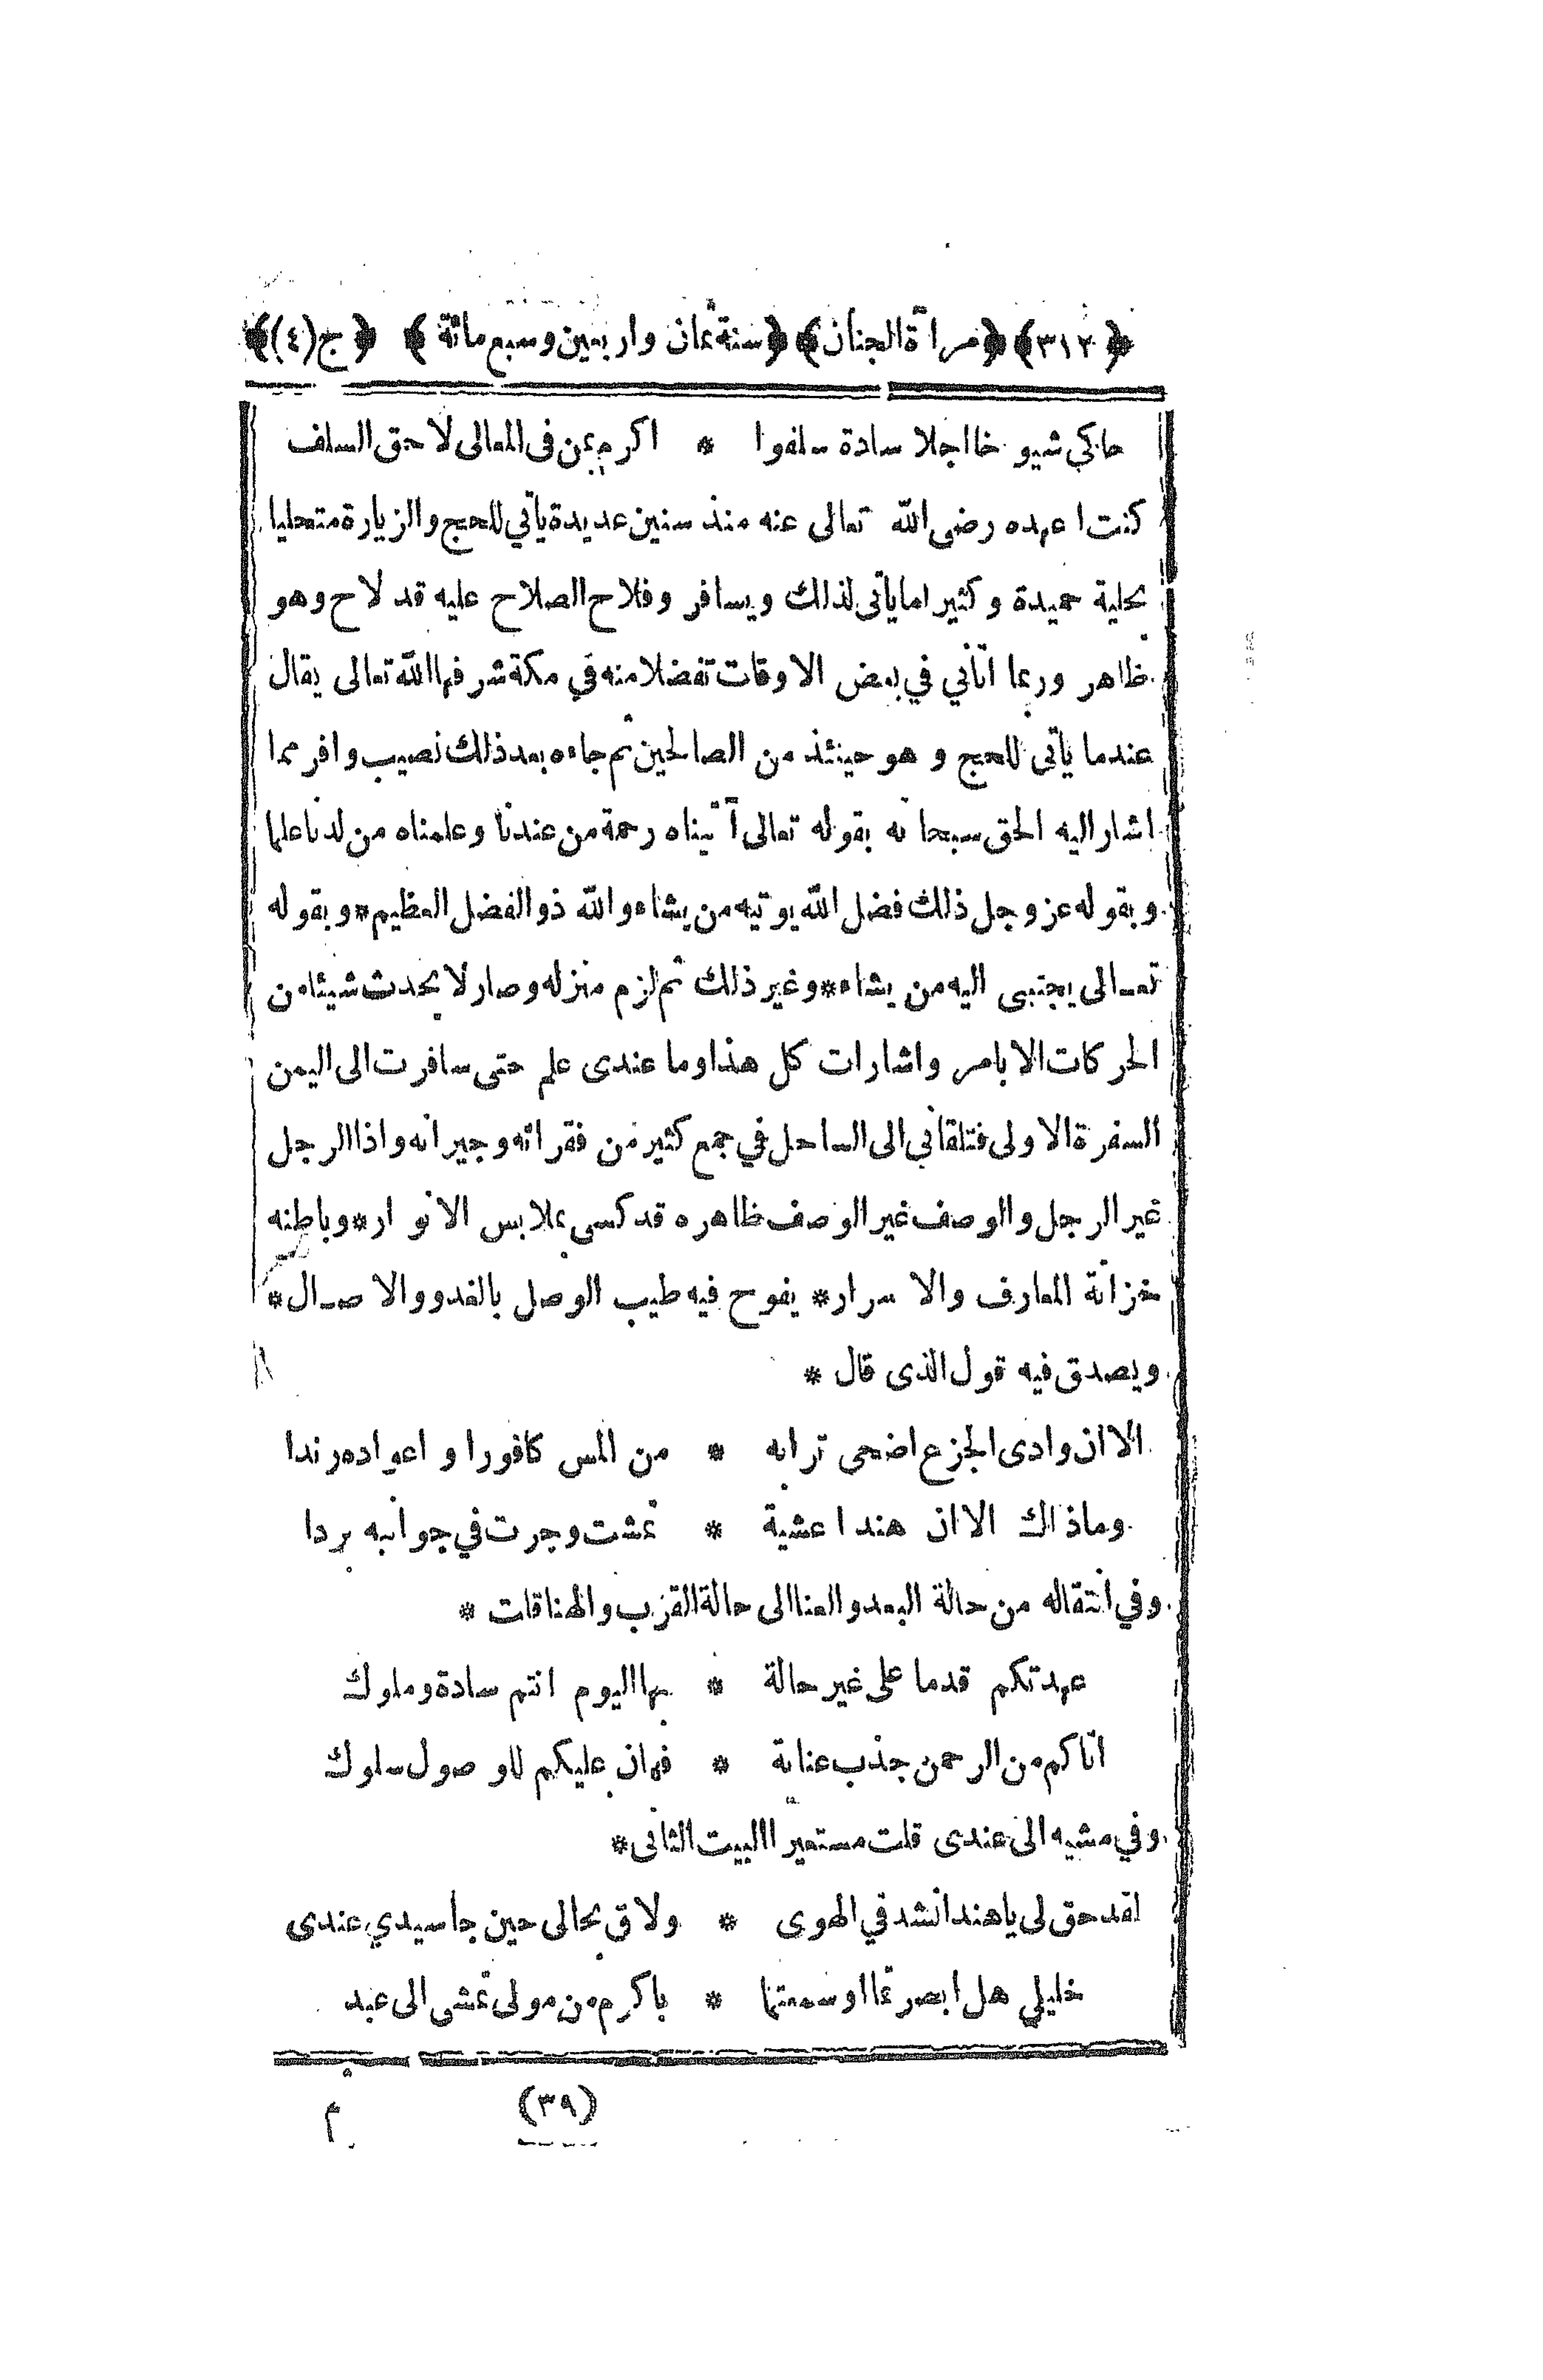 ﴿٣١٢﴾ ﴿مرآة الجنان﴾ ﴿سنة ثمان واربعين وسبع مائة﴾ ﴿ج(٤)﴾
حاكي شيوخا اجلا سادة سلفوا * اكرم بمن فى المعالى لاحق السلف
كنت اعهده رضى الله تعالى عنه منذ سنين عديدة يأتي للحج والزيارة متحليا
بحلية حميدة وكثيرا ما يأتى لذلك ويسافر وفلاح الصلاح عليه قد لاح وهو
ظاهر وربما اتاني في بعض الاوقات تفضلا منه في مكة شرفها الله تعالى يقال
عندما يأتى للحج و هو حينئذ من الصالحين ثم جاءه بعد ذلك نصيب وافر مما
اشار اليه الحق سبحانه بقوله تعالى آتيناه رحمة من عندنا وعلمناه من لدنا علما
وبقوله عز وجل ذلك فضل الله يوتيه من يشاء والله ذو الفضل العظيم * وبقوله
تعالى يجتبى اليه من يشاء * وغير ذلك ثم لزم منزله وصار لا يحدث شيئا من
الحركات الا بامر واشارات كل هذا وما عندى علم حتى سافرت الى اليمن
السفرة الاولى فتلقاني الى الساحل في جمع كثير من فقرائه وجيرانه واذا الرجل
غير الرجل والوصف غير الوصف ظاهره قد كسي بملابس الانوار * وباطنه
خزانة المعارف والاسرار * يفوح فيه طيب الوصل بالغدو والاصال *
ويصدق فيه قول الذى قال *
الا ان وادى الجزع اضحى ترابه * من المس كافورا و اعواده رندا
وما ذاك الا ان هندا عشية * تمشت وجرت في جوانبه بردا
وفي انتقاله من حالة البعد والعنا الى حالة القرب والهنا قلت *
عهدتكم قدما على غير حالة * بها اليوم انتم سادة وملوك
اتاكم من الرحمن جذب عناية * فهان عليكم للوصول سلوك
وفي مشيه الى عندى قلت مستعيرا البيت الثانى *
لقد حق لى يا هند انشد في الهوى * ولاق بحالى حين جا سيدي عندى
خليلي هل ابصرتما او سمعتما * باكرم من مولى تمشى الى عبد
(٣٩)